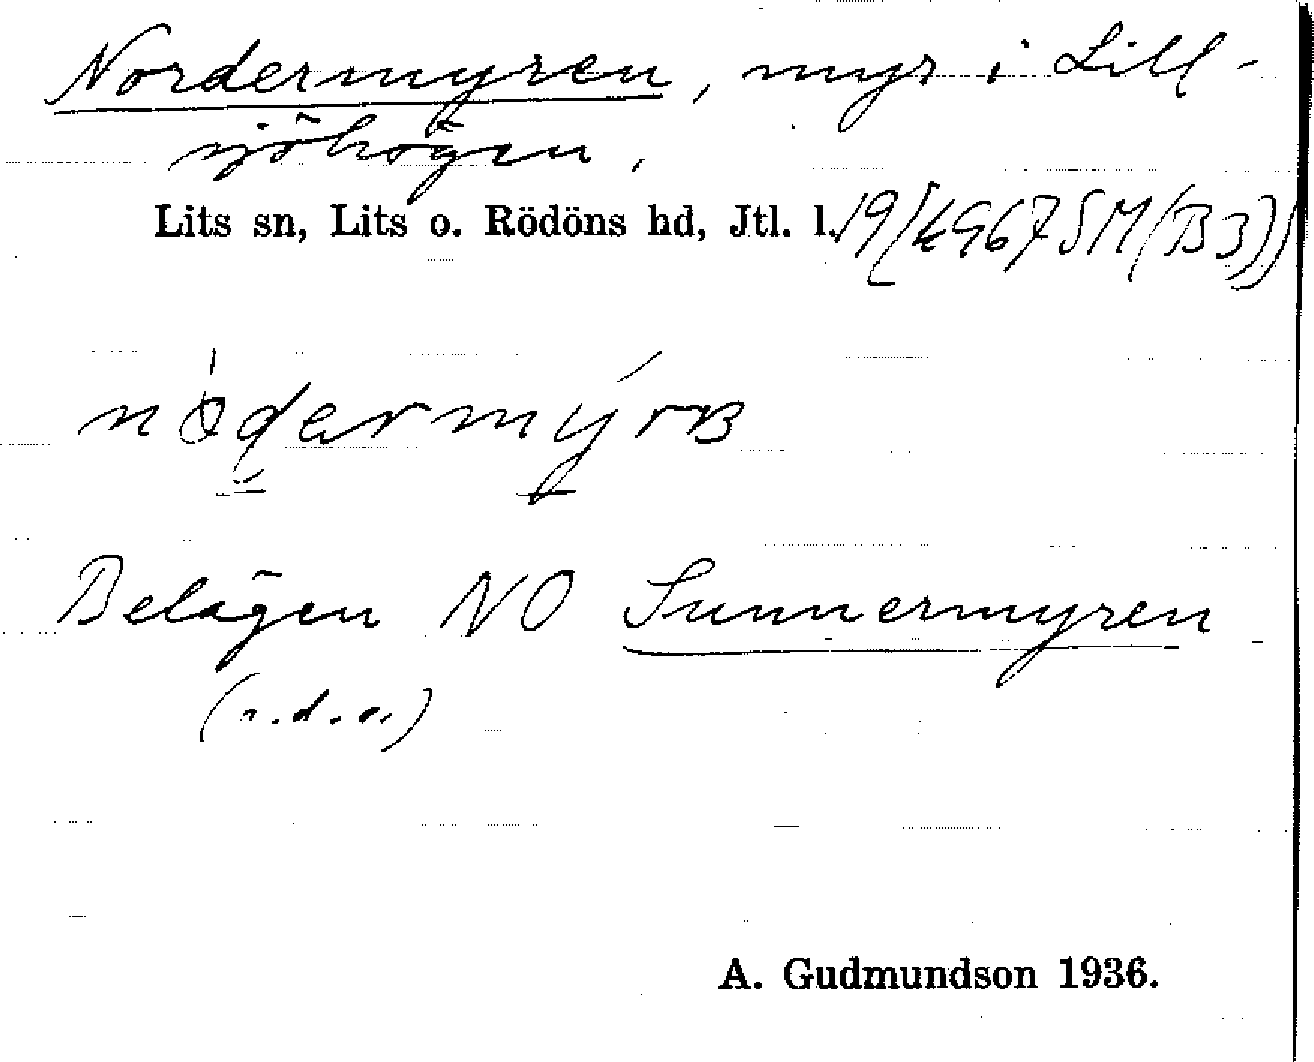 Nordermyren, myr i Lill-
sjöhögen.
Lits sn, Lits o. Rödöns hd, Jtl. l. 19/4967 SM (B3))
Belägen NO Sunnermyren
(s.d.o.)
A. Gudmundson 1936.